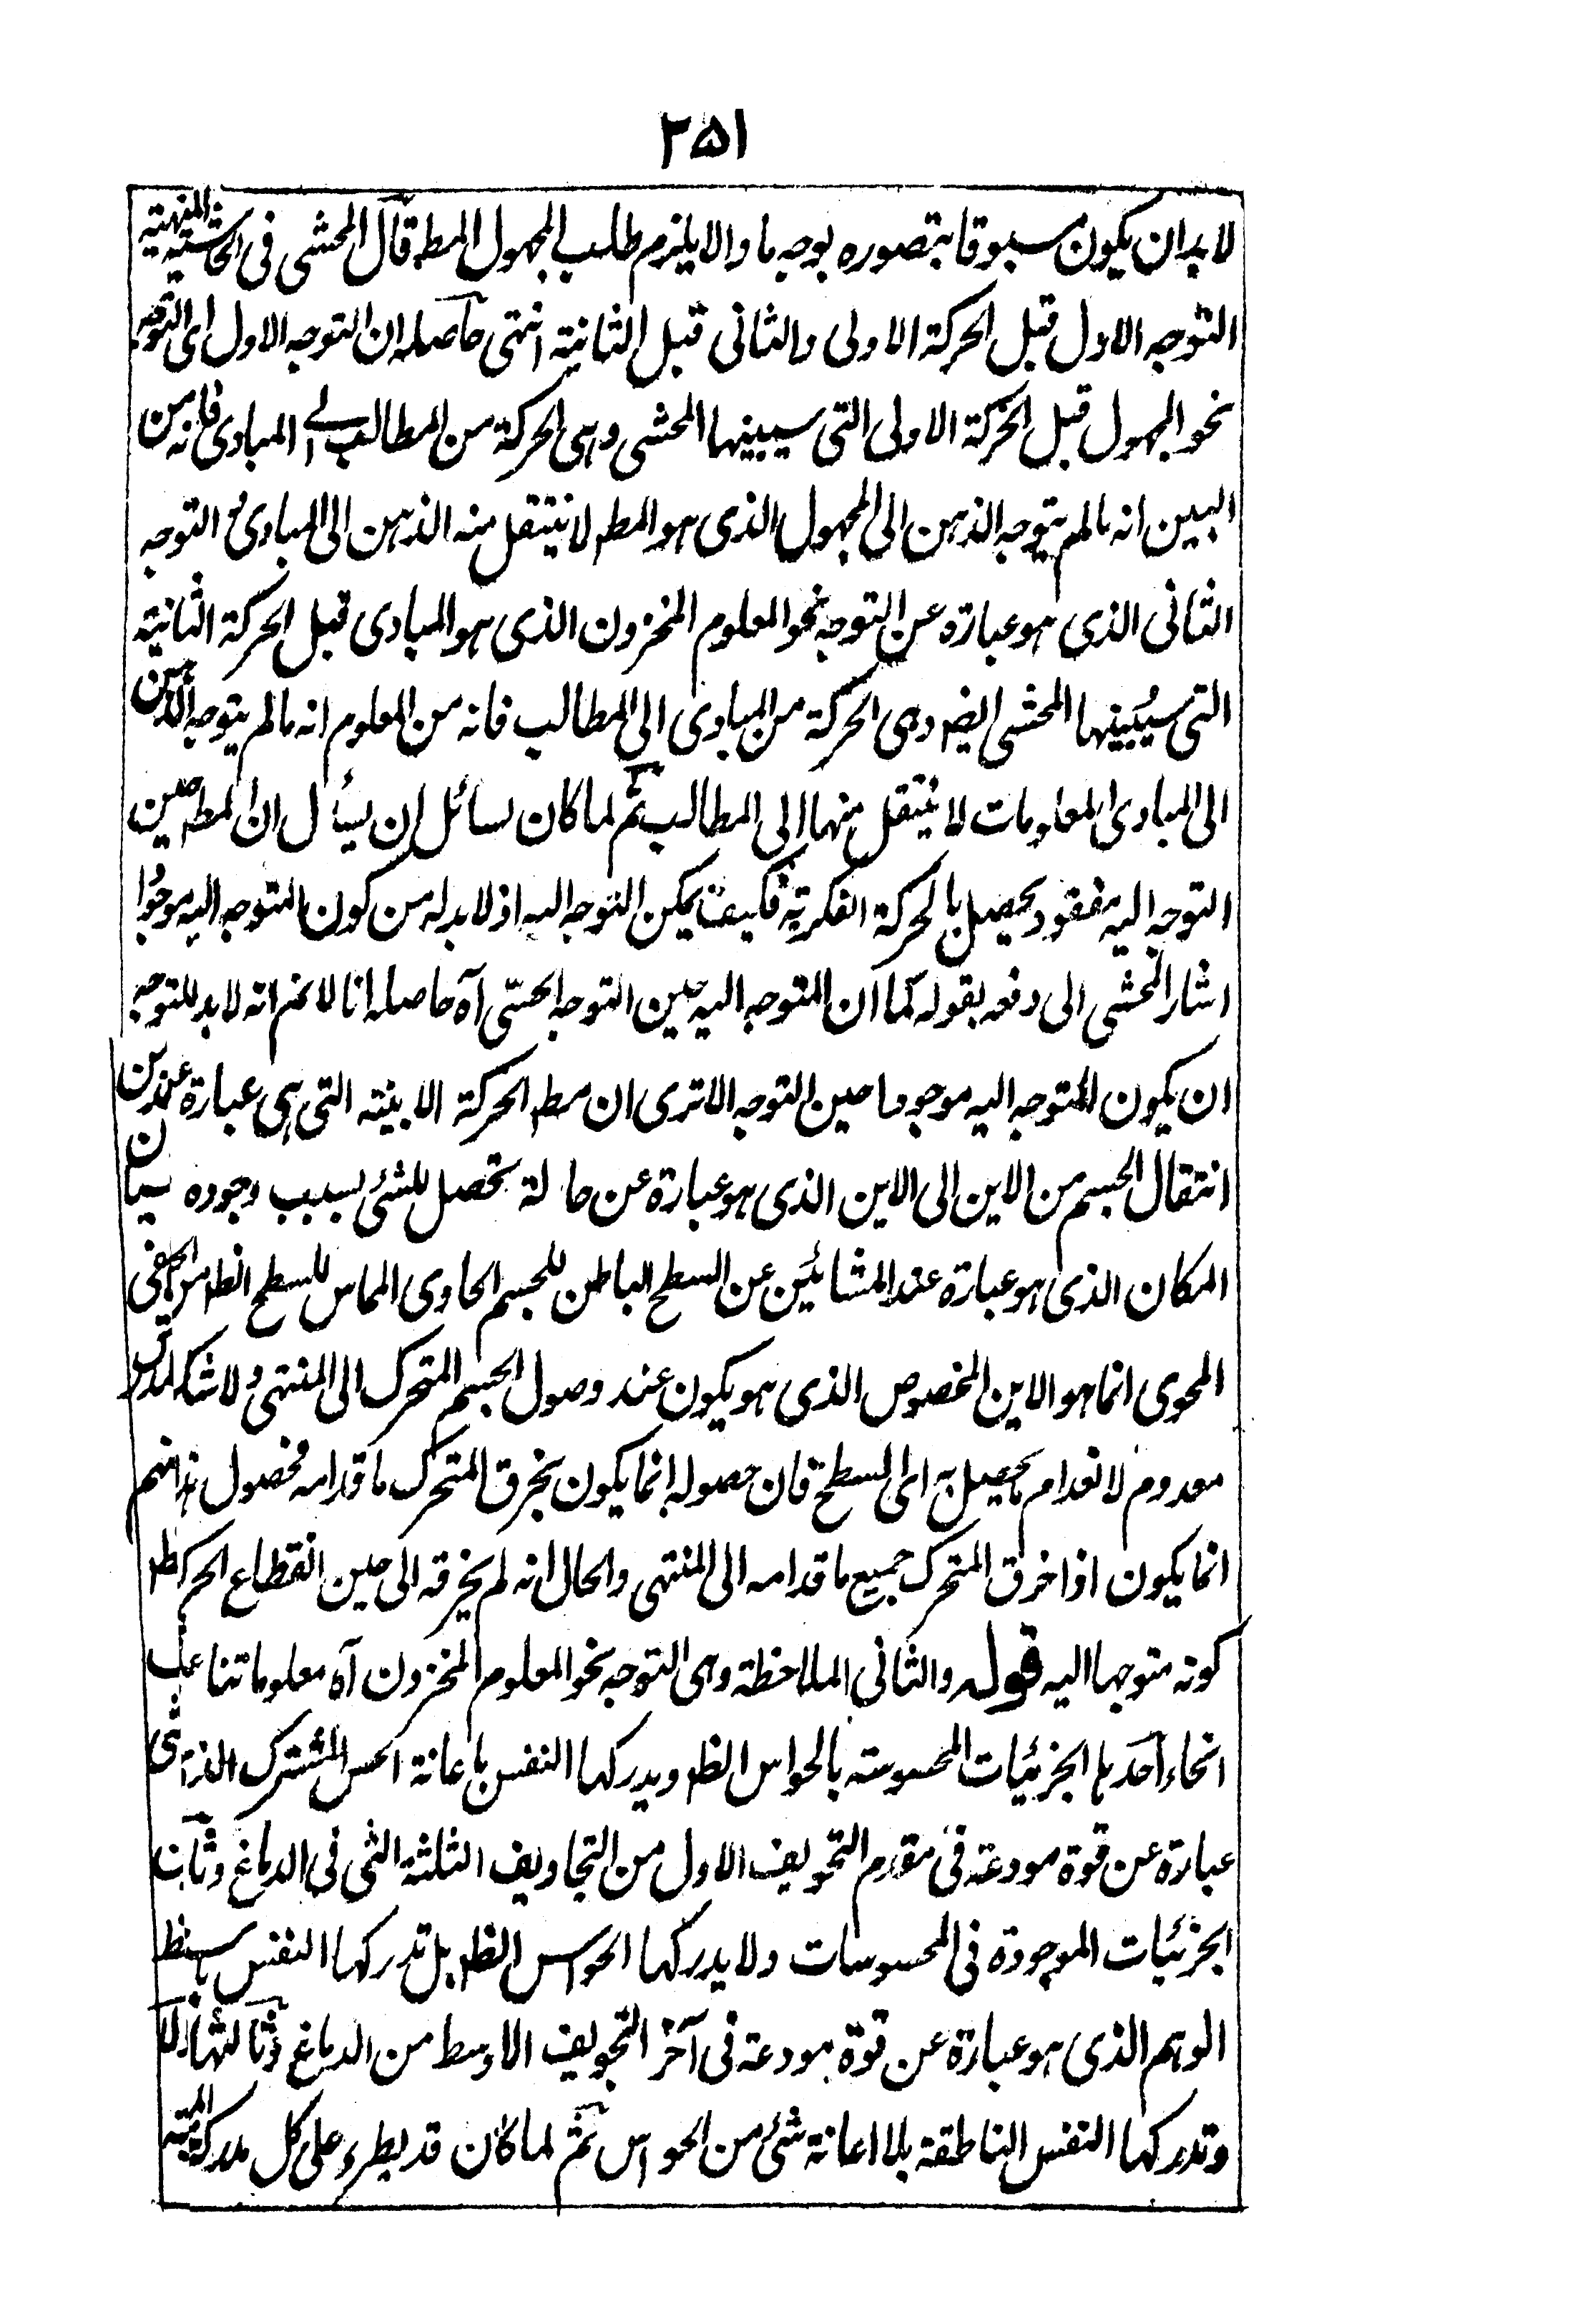 ٢٥١
لا بد ان يكون مسبوقا بتصوره بوجه ما والا يلزم طلب المجهول المط قال المحشى فى الحاشية المنهية
التوجه الاول قبل الحركة الاولى والثانى قبل الثانية انتهى حاصله ان التوجه الاول اى التوجه
نحو المجهول قبل الحركة الاولى التى سيبينها المحشى وهى الحركة من المطالب الى المبادى فانه من
البين انه مالم يتوجه الذهن الى المجهول الذى هو المط لا ينتقل منه الذهن الى المبادى و التوجه
الثانى الذى هو عبارة عن التوجه نحو المعلوم المخزون الذى هو المبادى قبل الحركة الثانية
التى سيبينها المحشى ايض وهى الحركة من المبادى الى المطالب فانه من المعلوم انه مالم يتوجه الذهن
الى المبادى المعلومات لا ينتقل منها الى المطالب ثم لما كان لسائل ان يسأل ان المط حين
التوجه اليه مفقود يحصل بالحركة الفكرية فكيف يمكن التوجه اليه اذ لا بد له من كون المتوجه اليه موجودا
اشار المحشى الى دفعه بقوله كما ان المتوجه اليه حين التوجه الحسى آه حاصله انا لا نم انه لا بد للتوجه
ان يكون المتوجه اليه موجودا حين التوجه الا ترى ان مط الحركة الاينية التى هى عبارة عندهن
انتقال الجسم من الاين الى الاين الذى هو عبارة عن حالة تحصل للشئ بسبب وجوده
المكان الذى هو عبارة عند المشائين عن السطح الباطن للجسم الحاوى المماس للسطح الظ من الجسم
المحوى انما هو الاين المخصوص الذى هو يكون عند وصول الجسم المتحرك الى المنتهى ولا شك
معدوم لانعدام ما يحصل به اى السطح فان حصوله انما يكون بخرق المتحرك ما قدامه فحصول
انما يكون اذا خرق المتحرك جميع ما قدامه الى المنتهى والحال انه لم يخرقه الى حين انقطاع الحركة
كونه متوجها اليه قوله والثانى الملاحظة وهى التوجه نحو المعلوم المخزون آه معلوماتنا على
انحاء احدها الجزئيات المحسوسة بالحواس الظ ويدركها النفس باعانة الحس المشترك الذى
عبارة عن قوة مودعة فى مقدم التجويف الاول من التجاويف الثلثة التى فى الدماغ وثان
الجزئيات الموجودة فى المحسوسات ولا يدركها الحواس الظ بل تدركها النفس
الوهم الذى هو عبارة عن قوة مودعة فى آخر التجويف الاوسط من الدماغ وثالثها
وتدركها النفس الناطقة بلا اعانة شئ من الحواس ثم لما كان قد يطرء على كل مدركة